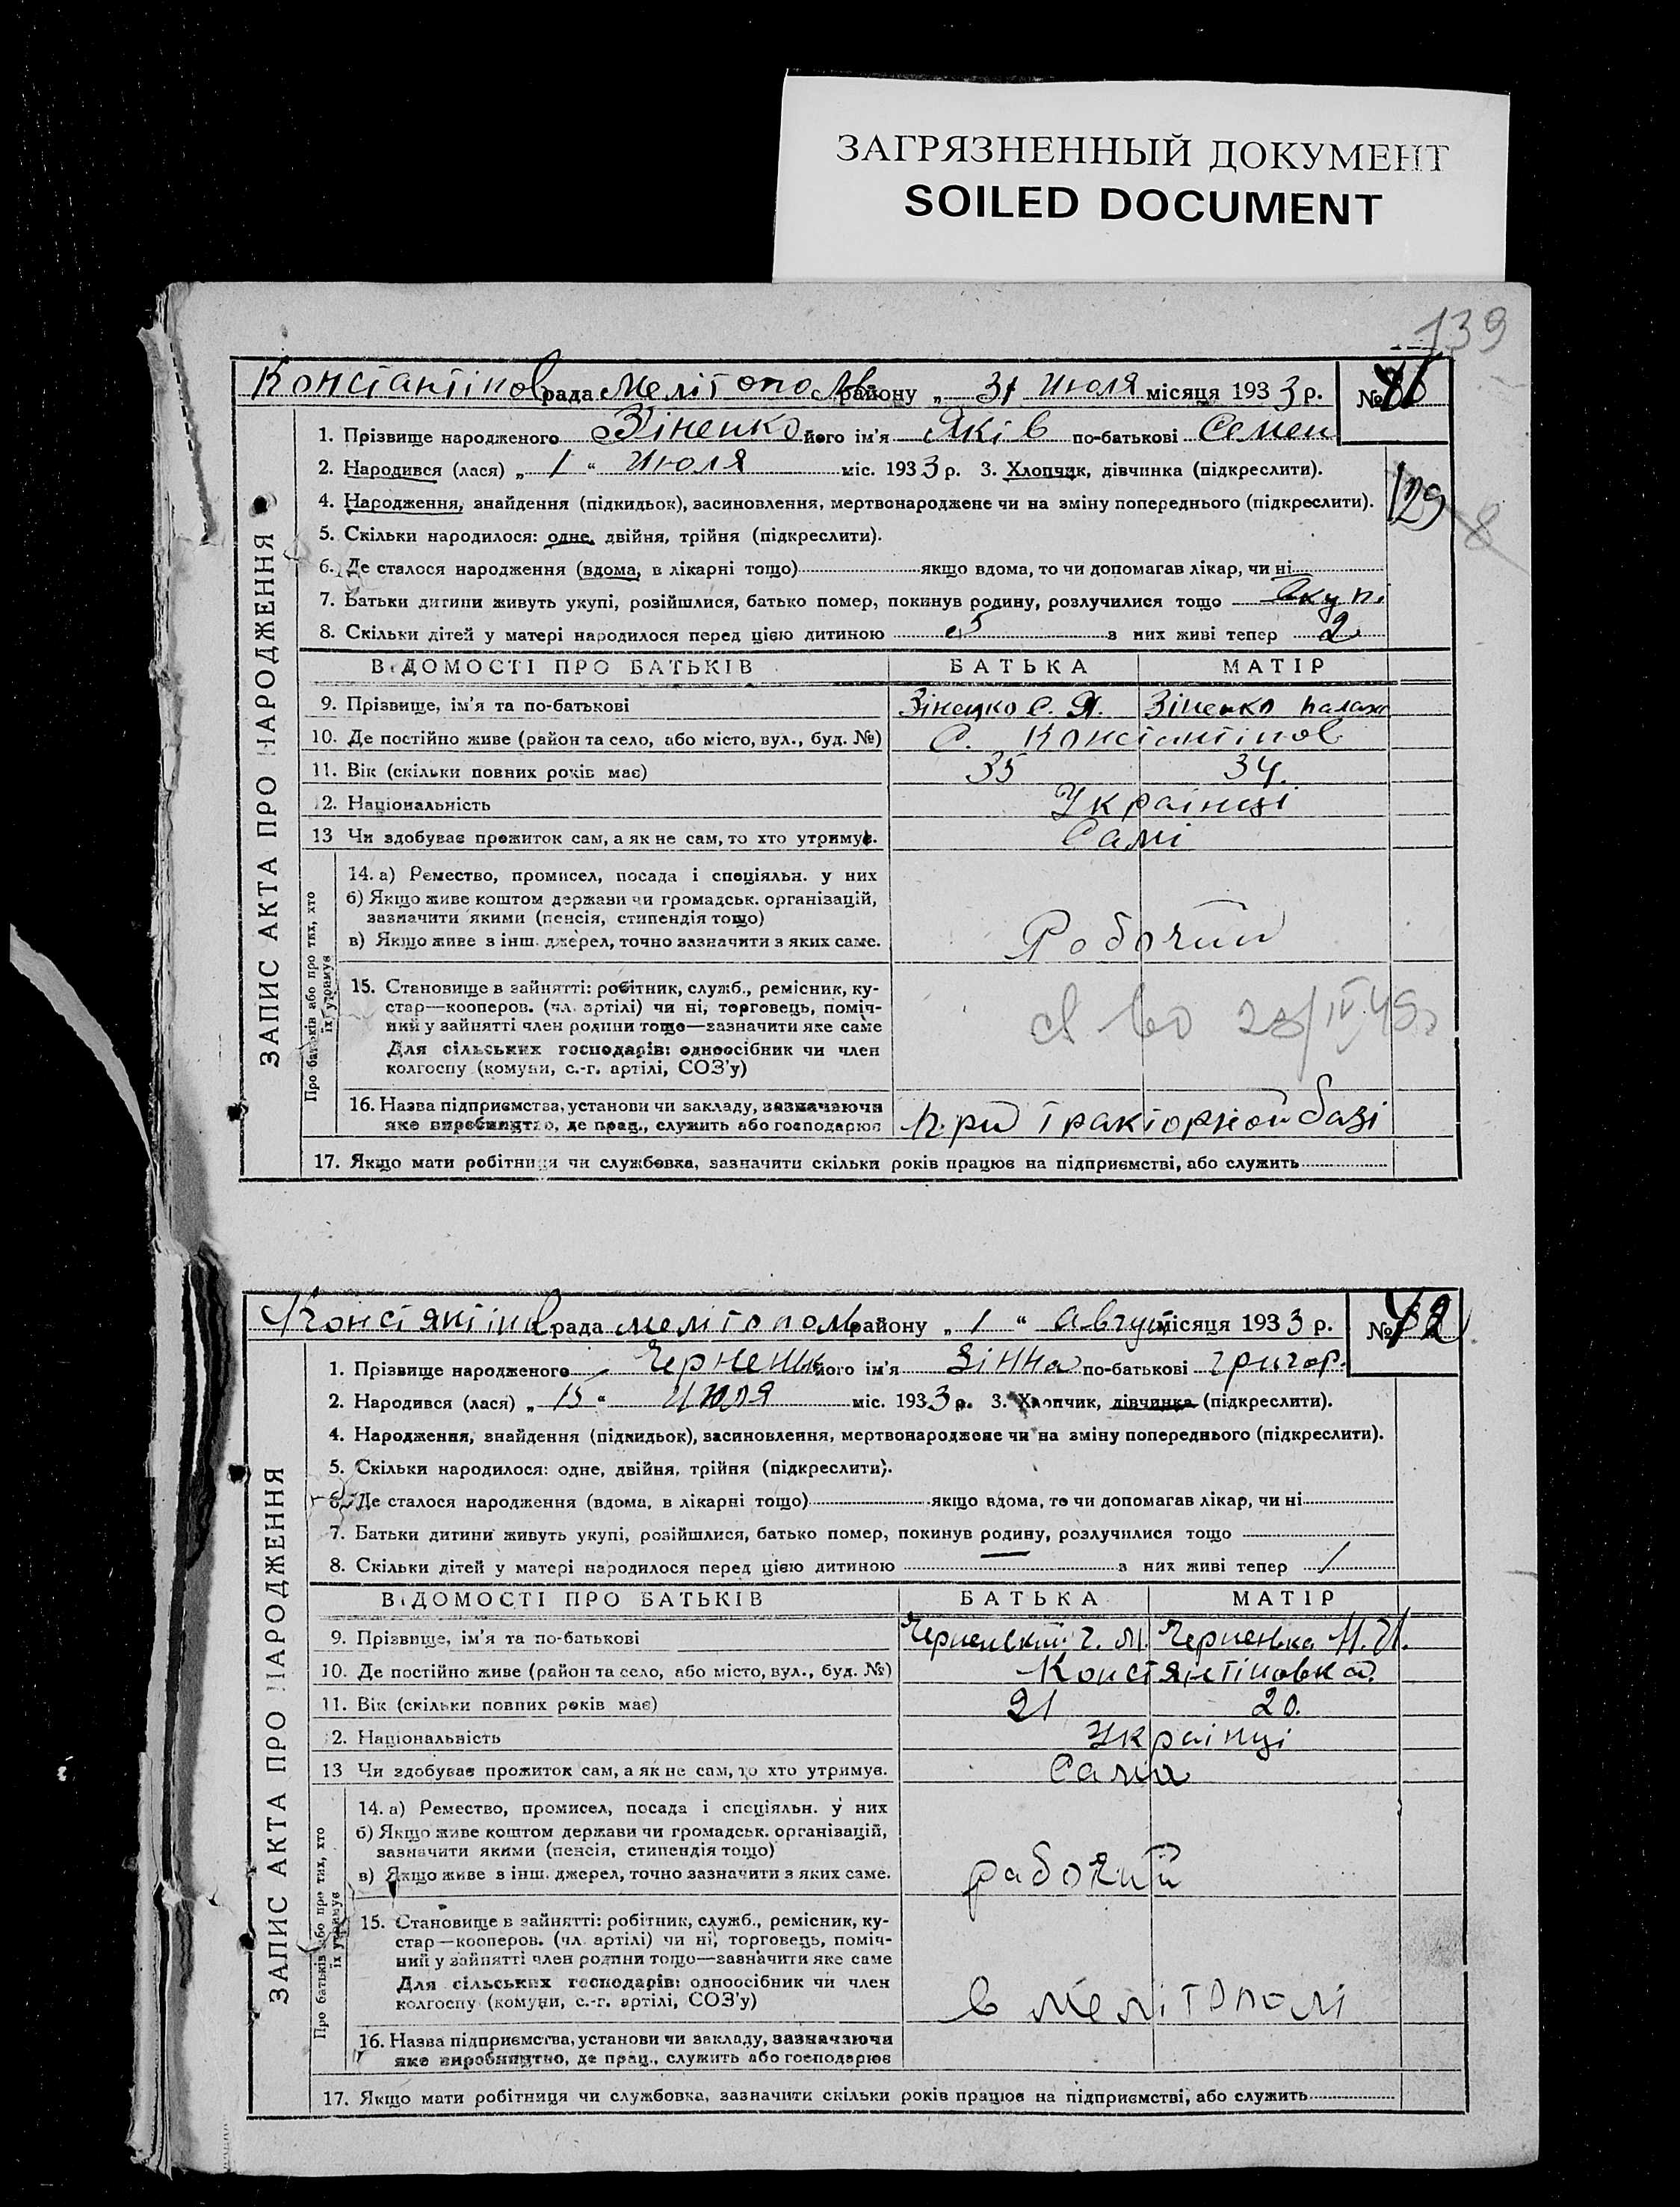 ЗАГРЯЗНЕННЫЙ ДОКУМЕНТ
SOILED DOCUMENT
139
Константінов рада Мелітопольс району „ 31 Июля місяця 1933 р. №
1. Прізвище народженого Зіненко його ім'я Яків по-батькові Семен
2. Народився (лася) „ 1 “ Июля міс. 1933 р. 3. Хлопчик, дівчинка (підкреслити).
129
4. Народження, знайдення (підкидьок), засиновлення, мертвонароджене чи на зміну попереднього (підкреслити).
8
5. Скільки народилося: одне, двійня, трійня (підкреслити).
6. Де сталося народження (вдома, в лікарні тощо) якщо вдома, то чи допомагав лікар, чи ні
7. Батьки дитини живуть укупі, розійшлися, батько помер, покинув родину, розлучилися тощо
8. Скільки дітей у матері народилося перед цією дитиною 5 з них живі тепер 2
ВІДОМОСТІ ПРО БАТЬКІВ БАТЬКА МАТІР
9. Прізвище, ім'я та по-батькові Зіненко С. Я. Зіненко Палаж
10. Де постійно живе (район та село, або місто, вул., буд. №) С. Константінов
11. Вік (скільки повних років має) 35 34.
12. Національність Украінці
13 Чи здобуває прожиток сам, а як не сам, то хто утримує. Самі
14. а) Ремество, промисел, посада і спеціяльн. у них
б) Якщо живе коштом держави чи громадськ. організацій,
зазначити якими (пенсія, стипендія тощо)
в) Якщо живе з інш. джерел, точно зазначити з яких саме.
Робочий
15. Становище в зайнятті: робітник, служб., ремісник, ку-
стар—кооперов. (чл. артілі) чи ні, торговець, поміч-
ний у зайнятті член родини тощо—зазначити яке саме
Для сільських господарів: одноосібник чи член
колгоспу (комуни, с.-г. артілі, СОЗ'у)
16. Назва підприємства, установи чи закладу, зазначаючи
яке виробництво, де прац., служить або господарює
При тракторной базі
17. Якщо мати робітниця чи службовка, зазначити скільки років працює на підприємстві, або служить
ЗАПИС АКТА ПРО НАРОДЖЕННЯ
Про батьків або про тих, хто
їх утримує
Констянтінов рада Мелітополь району „ 1 “ Август місяця 1933 р. № 72
1. Прізвище народженого Черненьк його ім'я Зінна по-батькові Григор.
2. Народився (лася) „ 15 “ Июля міс. 1933 р. 3. Хлопчик, дівчинка (підкреслити).
4. Народження, знайдення (підкидьок), засиновлення, мертвонароджене чи на зміну попереднього (підкреслити).
5. Скільки народилося: одне, двійня, трійня (підкреслити).
6. Де сталося народження (вдома, в лікарні тощо) якщо вдома, то чи допомагав лікар, чи ні
7. Батьки дитини живуть укупі, розійшлися, батько помер, покинув родину, розлучилися тощо
8. Скільки дітей у матері народилося перед цією дитиною — з них живі тепер 1
ВІДОМОСТІ ПРО БАТЬКІВ БАТЬКА МАТІР
9. Прізвище, ім'я та по-батькові Черненький Г. М. Черненька Н. И.
10. Де постійно живе (район та село, або місто, вул., буд. №) Констянтіновка
11. Вік (скільки повних років має) 21 20.
12. Національність Украінці
13 Чи здобуває прожиток сам, а як не сам, то хто утримує.
14. а) Ремество, промисел, посада і спеціяльн. у них
б) Якщо живе коштом держави чи громадськ. організацій,
зазначити якими (пенсія, стипендія тощо)
в) Якщо живе з інш. джерел, точно зазначити з яких саме.
рабочий
15. Становище в зайнятті: робітник, служб., ремісник, ку-
стар—кооперов. (чл. артілі) чи ні, торговець, поміч-
ний у зайнятті член родини тощо—зазначити яке саме
Для сільських господарів: одноосібник чи член
колгоспу (комуни, с.-г. артілі, СОЗ'у)
в Мелітополі
16. Назва підприємства, установи чи закладу, зазначаючи
яке виробництво, де прац., служить або господарює
17. Якщо мати робітниця чи службовка, зазначити скільки років працює на підприємстві, або служить
ЗАПИС АКТА ПРО НАРОДЖЕННЯ
Про батьків або про тих, хто
їх утримує